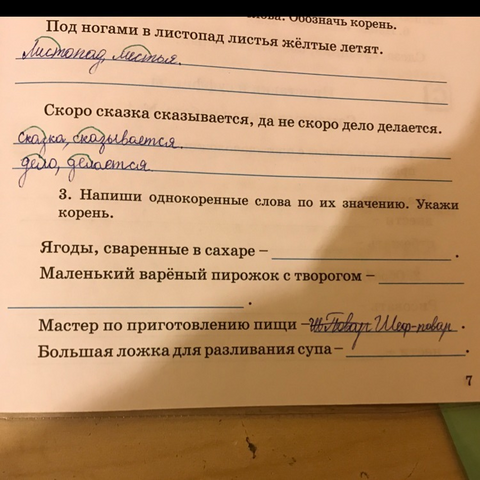 слова. Обозначь корень.
Под ногами в листопад листья жёлтые летят.
Листопад, листья.
Скоро сказка сказывается, да не скоро дело делается.
сказка, сказывается.
дело, делается.
3. Напиши однокоренные слова по их значению. Укажи
корень.
Ягоды, сваренные в сахаре – .
Маленький варёный пирожок с творогом –
.
Мастер по приготовлению пищи – Повар Шеф-повар .
Большая ложка для разливания супа – .
7